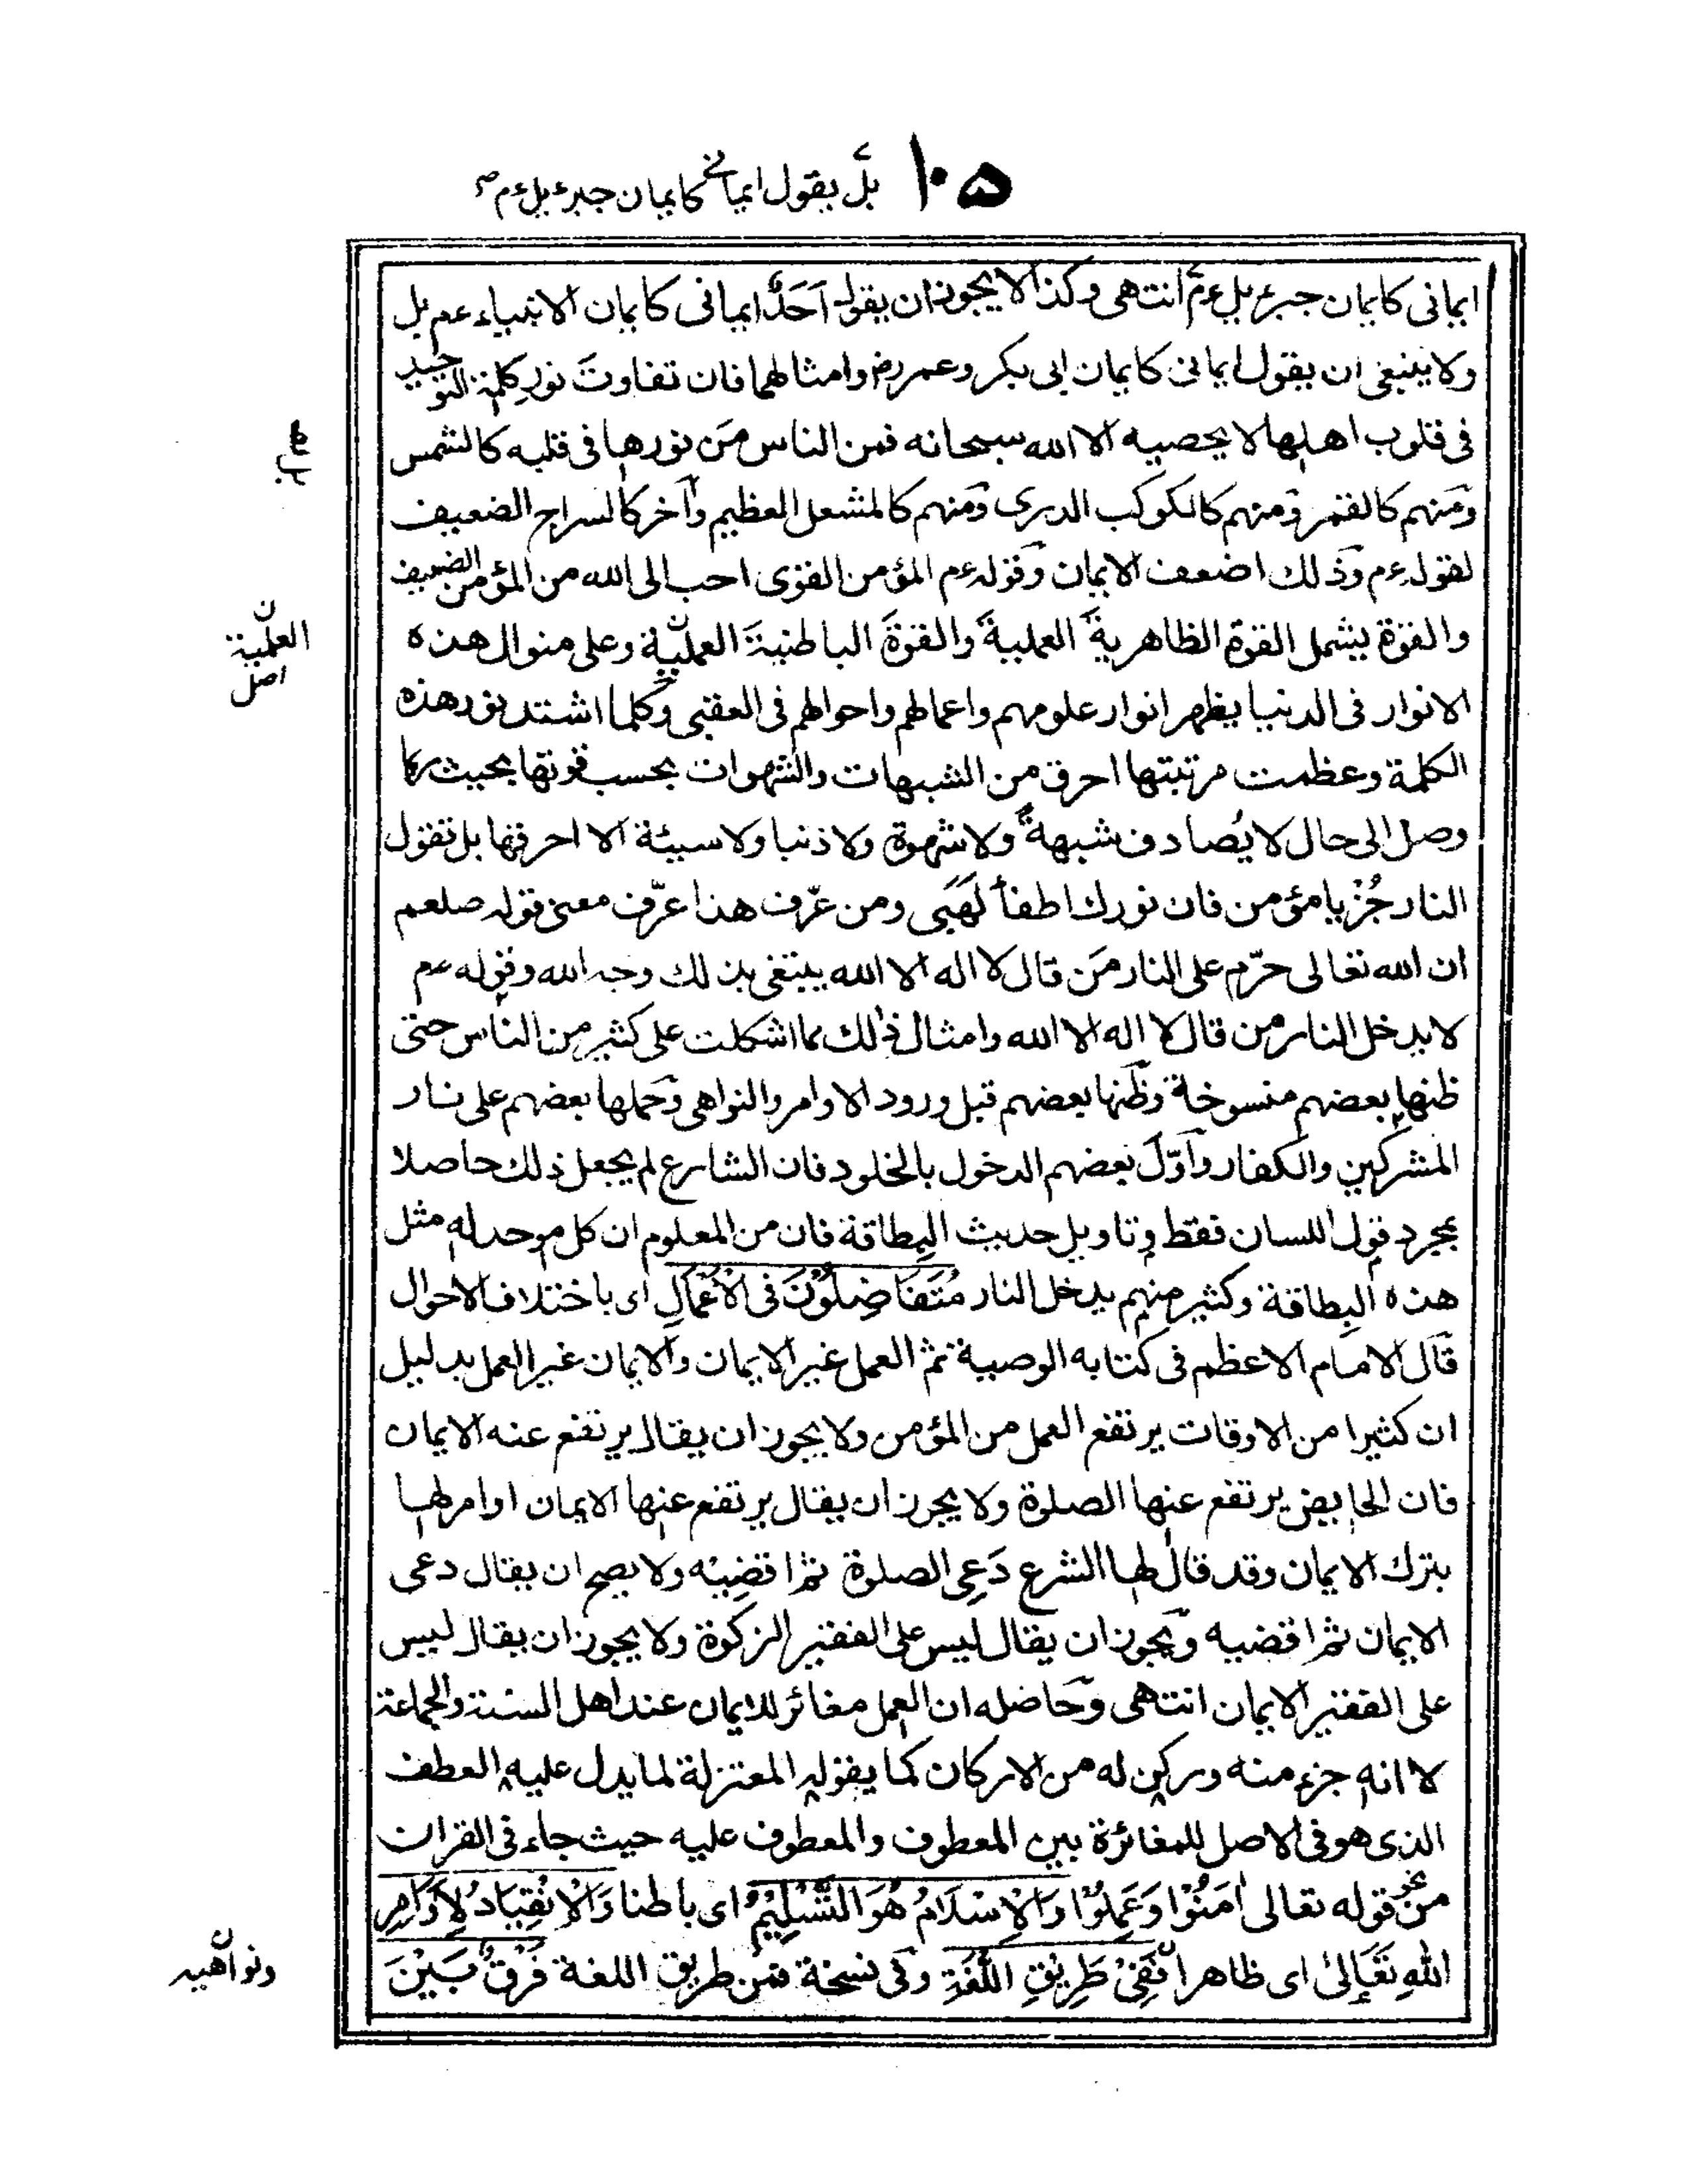 ١٠٥ بل يقول ايمانى كايمان جبرئيل عم صح
ايمانى كايمان جبرئيل عم انتهى وكذا لا يجوز ان يقول اَحَدٌ ايمانى كايمان الانبياء عم بل
ولا ينبغى ان يقول ايمانى كايمان ابى بكر وعمر رض وامثالهما فان تفاوتَ نورِ كلمة التوحيد
فى قلوب اهلها لا يحصيه الا الله سبحانه فمن الناس مَن نورها فى قلبه كالشمس
ومنهم كالقمر ومنهم كالكوكب الدرى ومنهم كالمشعل العظيم وآخر كالسراج الضعيف
لقوله عم وذلك اضعف الايمان وقوله عم المؤمن القوى احب الى الله من المؤمن الضعيف
والقوة يشمل القوة الظاهرية العملية والقوةَ الباطنيةَ العلميّة وعلى منوال هذه
العلمية ن
اصل
الانوار فى الدنيا يظهر انوار علومهم واعمالهم واحوالهم فى العقبى وكلما اشتد نور هذه
الكلمة وعظمت مرتبتها احرق من الشبهات والشهوات بحسب قوتها بحيث ربما
وصل الى حال لا يُصادف شبهةً ولا شهوة ولا ذنبا ولا سيئة الا احرقها بل تقول
النار جُزْ يا مؤمن فان نورك اطفأ لَهَبى ومن عرَف هذا عرَف معنى قوله صلعم
ان الله تعالى حرّم على النار مَن قال لا اله الا الله يبتغى بذلك وجه الله وقوله عم
لا يدخل النار من قال لا اله الا الله وامثال ذلك مما اشكلت على كثير من الناس حتى
ظنها بعضهم منسوخة وظنها بعضهم قبل ورود الاوامر والنواهى وحملها بعضهم على نار
المشركين والكفار واوّلَ بعضهم الدخول بالخلود فان الشارع لم يجعل ذلك حاصلا
بمجرد قول اللسان فقط وتاويل حديث البِطاقة فان من المعلوم ان كل موحد له مثل
هذه البِطاقة وكثير منهم يدخل النار مُتَفَاضِلُوْنَ فى الْاَعْمَالِ اى باختلاف الاحوال
قال الامام الاعظم فى كتابه الوصية ثم العمل غير الايمان والايمان غير العمل بدليل
ان كثيرا من الاوقات يرتفع العمل من المؤمن ولا يجوز ان يقال يرتفع عنه الايمان
فان الحايض يرتفع عنها الصلوة ولا يجوز ان يقال يرتفع عنها الايمان او امر لها
بترك الايمان وقد قال لها الشرع دَعِى الصلوة ثم اقضِيْه ولا يصح ان يقال دعى
الايمان ثم اقضيه ويجوز ان يقال ليس على الفقير الزكوة ولا يجوز ان يقال ليس
على الفقير الايمان انتهى وحاصله ان العمل مغائر للايمان عند اهل السنة والجماعة
لا انه جزء منه وركن له من الاركان كما يقوله المعتزلة لما يدل عليه العطف
الذى هو فى الاصل للمغائرة بين المعطوف والمعطوف عليه حيث جاء فى القران
من نحو قوله تعالى اٰمَنُوْا وَعَمِلُوْا وَالْاِسْلَامُ هُوَ التَّسْلِيْمُ اى باطنا وَالْاِنْقِيَادُ لِاَوَامِرِ
اللهِ تَعَالىٰ اى ظاهرا فَفِىْ طَرِيْقِ اللُّغَةِ وفى نسخة فمن طريق اللغة فَرْقٌ بَيْنَ
ونواهيه ن